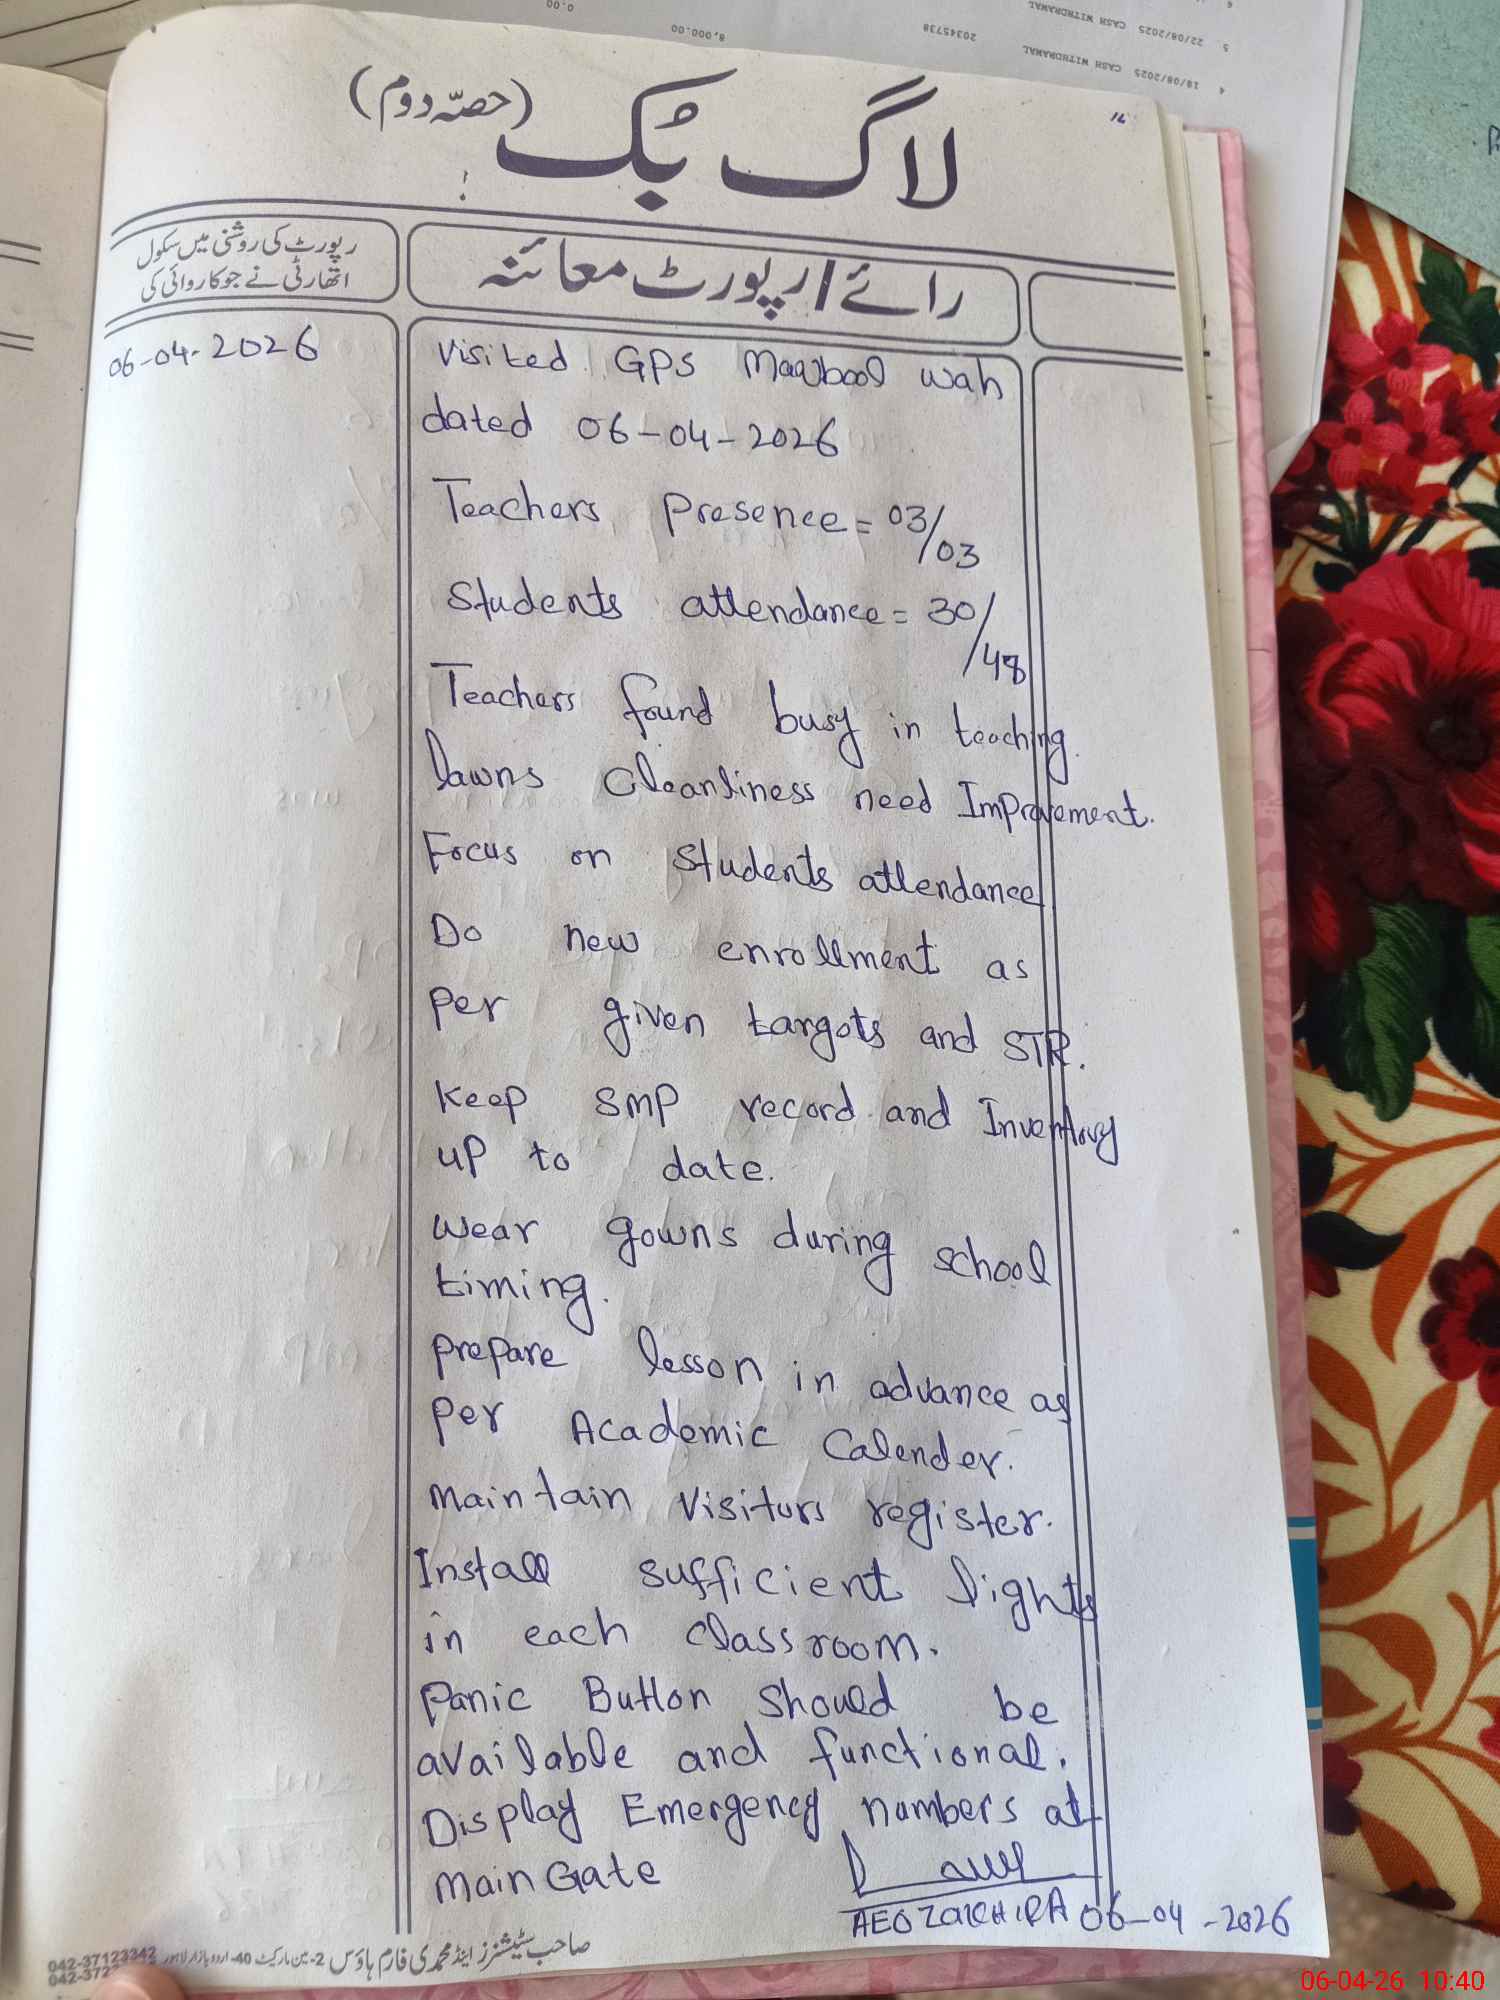 6
5 22/08/2025 CASH WITHDRAWAL 20345738 8,000.00 0.00
4 18/08/2025 CASH WITHDRAWAL
71
لاگ بک (حصّہ دوم)
رائے / رپورٹ معائنہ
رپورٹ کی روشنی میں سکول
اتھارٹی نے جو کاروائی کی
06-04-2026
Visited GPS Maqbool wah
dated 06-04-2026
Teachers Presence = 03/03
Students attendance = 30/48
Teachers found busy in teaching.
lawns Cleanliness need Improvement.
Focus on students attendance
Do new enrollment as
Per given targets and STR.
Keep SMP record and Inventory
up to date.
Wear gowns during school
timing.
Prepare lesson in advance as
Per Academic Calender.
Maintain Visitors register.
Install sufficient lights
in each classroom.
Panic Button should be
available and functional.
Display Emergency numbers at
Main Gate
AEO ZAKHIRA 06-04-2026
صاحب سٹیشنرز اینڈ محمدی فارم ہاؤس 2-مین مارکیٹ 40-اردو بازار لاہور 042-37123342
06-04-26 10:40